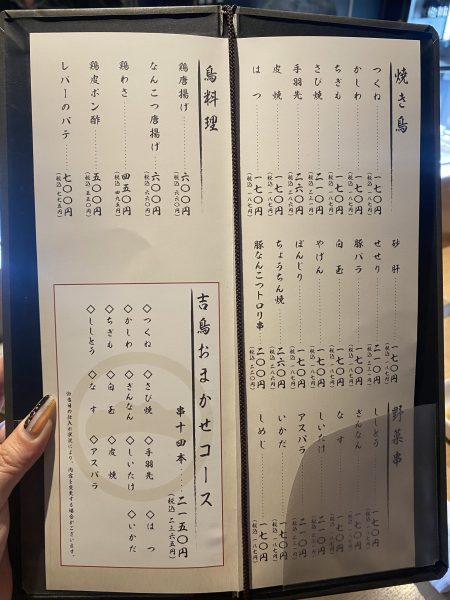 焼き鳥
つくね 一七〇円 (税込 一八七円)
かしわ 一七〇円 (税込 一八七円)
ちぎも 一七〇円 (税込 一八七円)
さび焼 二一〇円 (税込 二三一円)
手羽先 二六〇円 (税込 二八六円)
皮焼 一七〇円 (税込 一八七円)
はつ 一七〇円 (税込 一八七円)
砂肝 一七〇円 (税込 一八七円)
せせり 二一〇円 (税込 二三一円)
豚バラ 一七〇円 (税込 一八七円)
白玉 一七〇円 (税込 一八七円)
やげん
ぼんじり
ちょうちん焼 二六〇円 (税込 二八六円)
豚なんこつトロリ串 二〇〇円 (税込 二二〇円)
野菜串
ししとう 一七〇円
ぎんなん 一七〇円
なす
しいたけ
アスパラ
いかだ 一七〇円 (税込 一八七円)
しめじ 一七〇円 (税込 一八七円)
鳥料理
鶏唐揚げ 六〇〇円 (税込 六六〇円)
なんこつ唐揚げ 六〇〇円 (税込 六六〇円)
鶏わさ 四五〇円 (税込 四九五円)
鶏皮ポン酢 五〇〇円 (税込 五五〇円)
レバーのパテ 七〇〇円
吉鳥おまかせコース
串十四本 二一五〇円 (税込 二三六五円)
◇つくね ◇さび焼 ◇手羽先 ◇はつ
◇かしわ ◇ぎんなん ◇しいたけ ◇いかだ
◇ちぎも ◇白玉 ◇皮焼
◇ししとう ◇なす ◇アスパラ
※当日の仕入れ状況により、内容を変更する場合がございます。